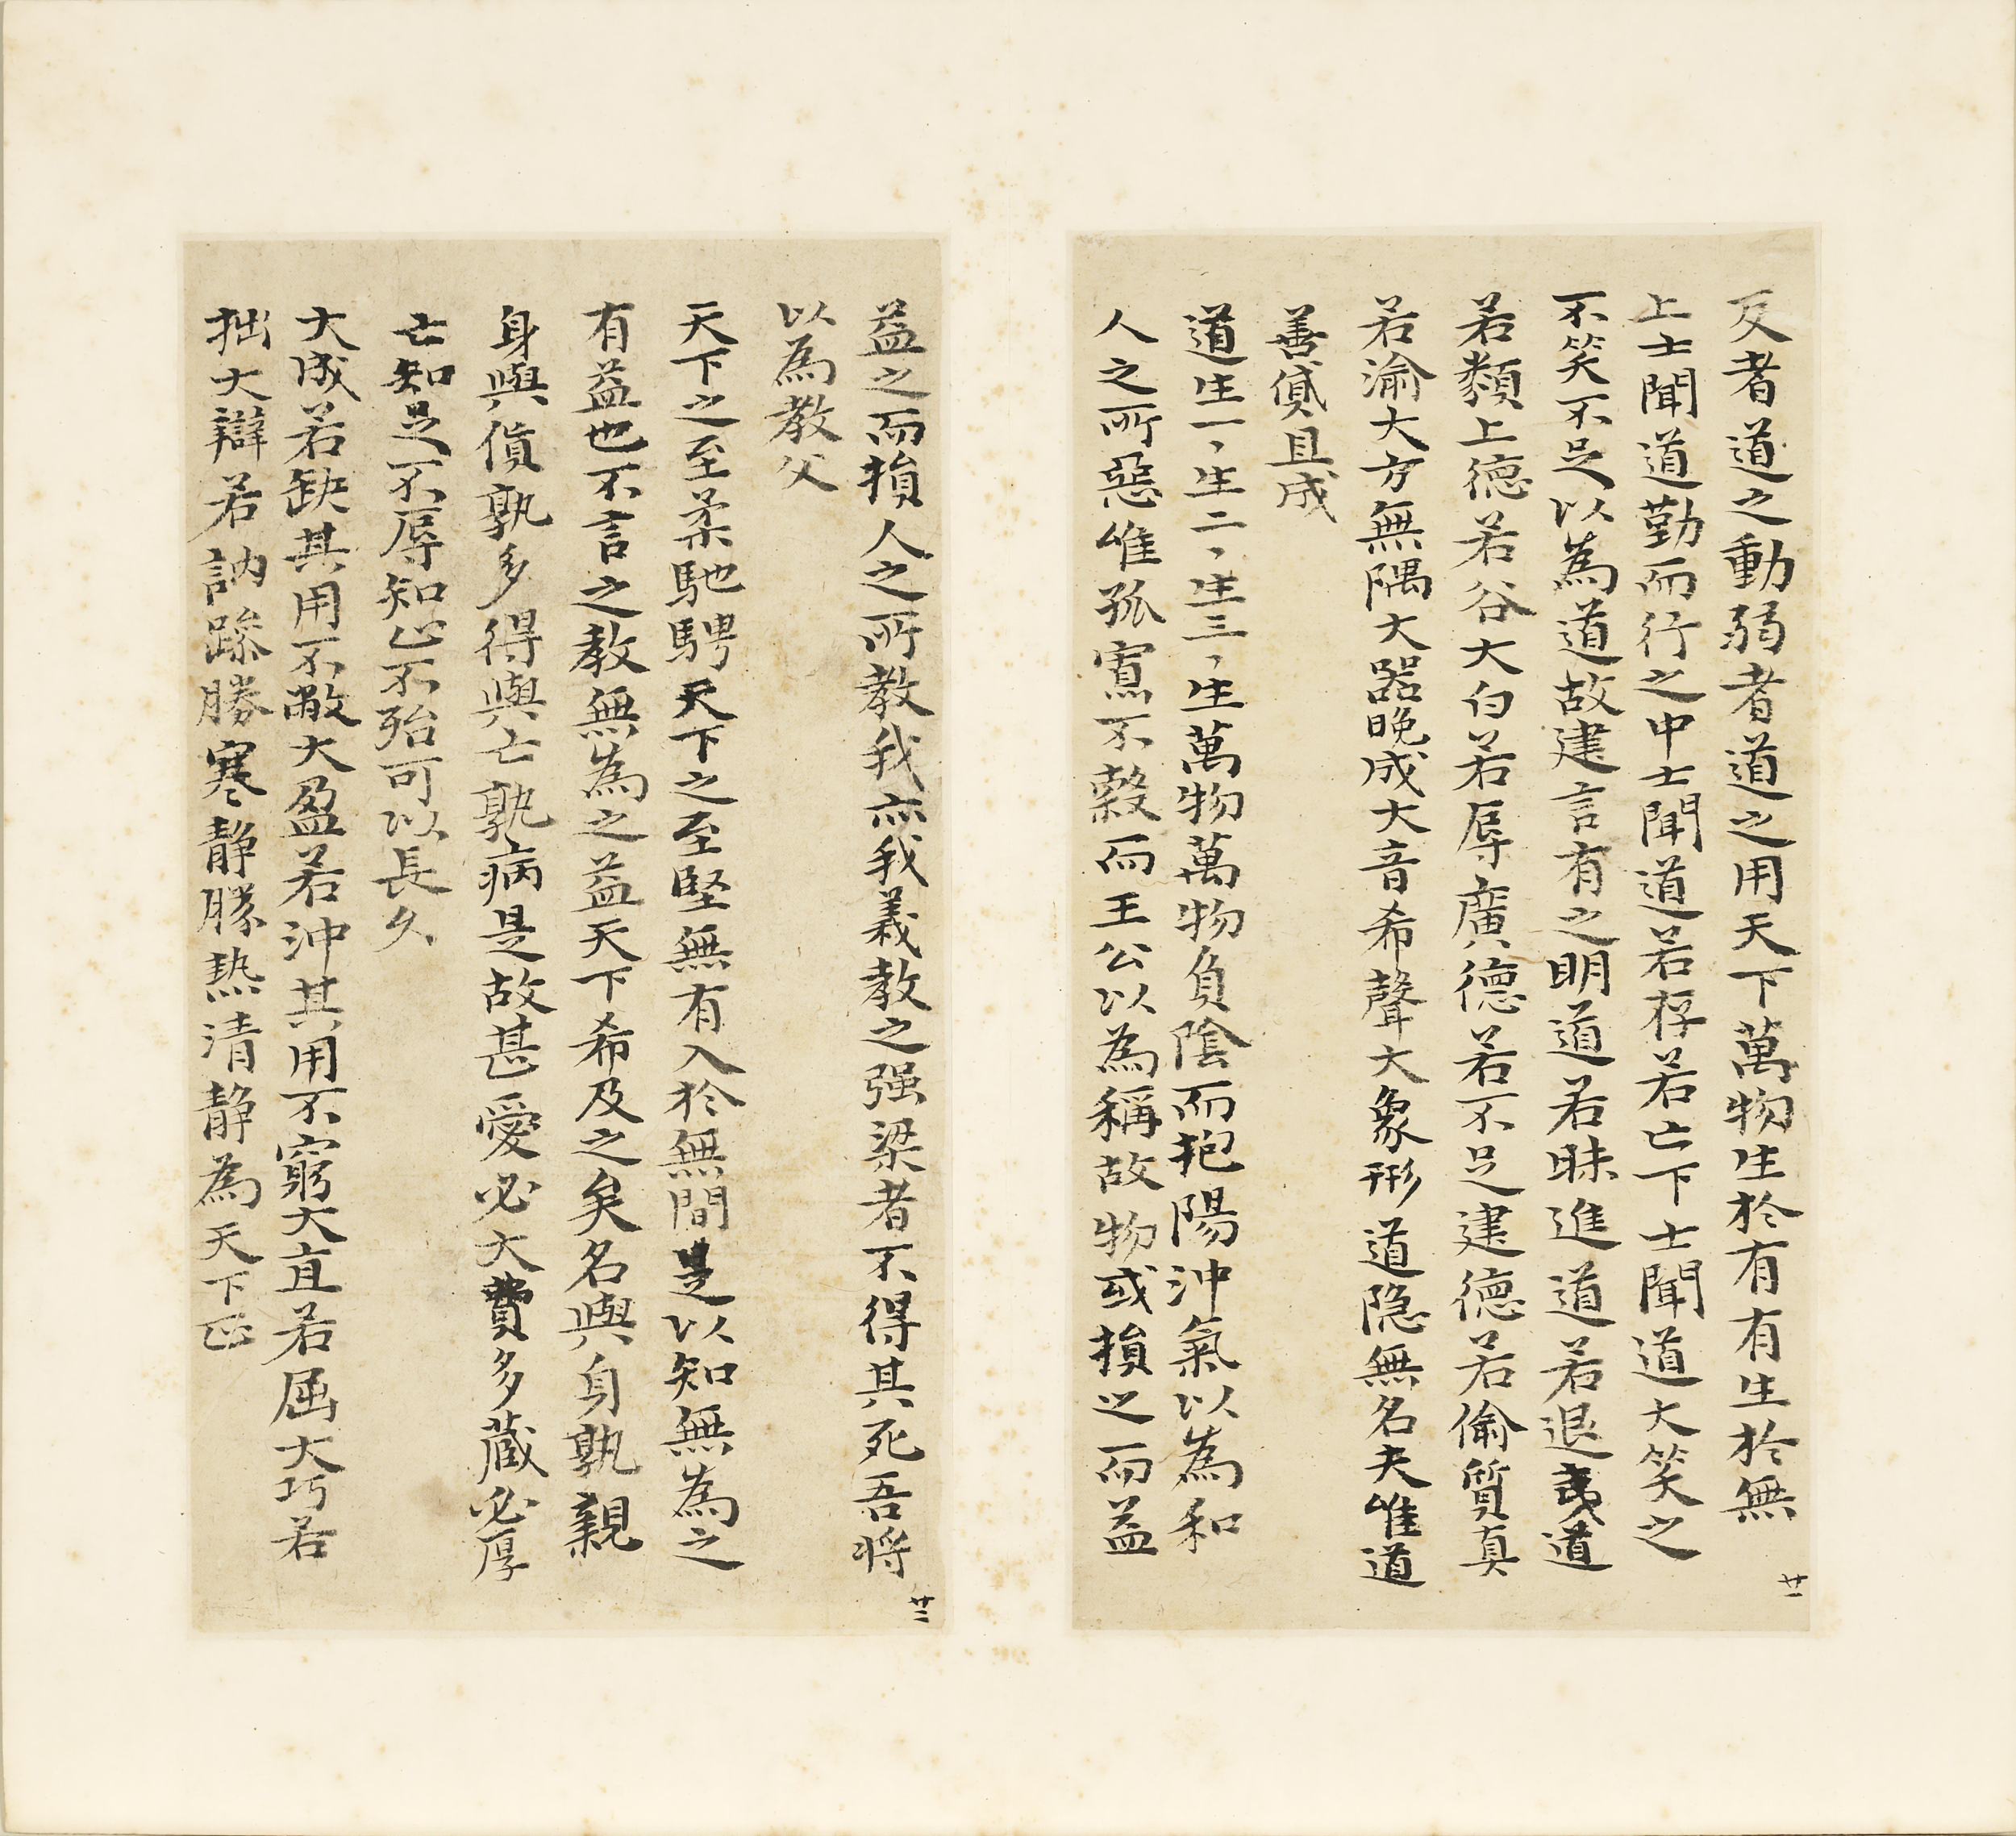 反者道之動弱者道之用天下萬物生於有有生於無
廿一
上士聞道勤而行之中士聞道若存若亡下士聞道大笑之
不笑不足以為道故建言有之明道若昧進道若退夷道
若纇上德若谷大白若辱廣德若不足建德若偷質真
若渝大方無隅大器晚成大音希聲大象形道隐無名夫唯道
善貸且成
道生一、生二、生三、生萬物萬物負陰而抱陽沖氣以為和
人之所惡唯孤寡不穀而王公以為稱故物或損之而益
益之而損人之所教我亦我義教之强梁者不得其死吾将
廿二
以為教父
天下之至柔馳騁天下之至堅無有入於無間是以知無為之
有益也不言之教無為之益天下希及之矣名與身孰親
身與貨孰多得與亡孰病是故甚愛必大費多藏必厚
亡知足不辱知止不殆可以長久
大成若缺其用不敝大盈若沖其用不窮大直若屈大巧若
拙大辯若訥躁勝寒静勝热清静為天下正